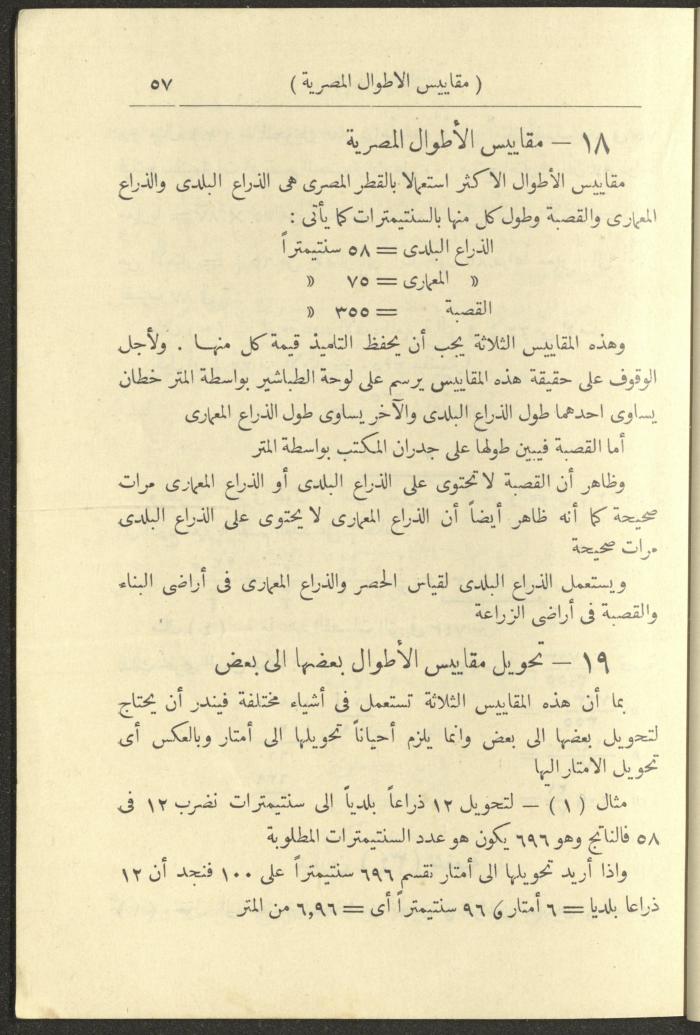 ( مقاييس الاطوال المصرية ) ٥٧
١٨ — مقاييس الأطوال المصرية
مقاييس الأطوال الاكثر استعمالا بالقطر المصرى هى الذراع البلدى والذراع
المعمارى والقصبة وطول كل منها بالسنتيمترات كما يأتى :
الذراع البلدى = ٥٨ سنتيمتراً
« المعمارى = ٧٥ «
القصبة = ٣٥٥ «
وهذه المقاييس الثلاثة يجب أن يحفظ التلميذ قيمة كل منهـا . ولأجل
الوقوف على حقيقة هذه المقاييس يرسم على لوحة الطباشير بواسطة المتر خطان
يساوى احدهما طول الذراع البلدى والآخر يساوى طول الذراع المعمارى
أما القصبة فيبين طولها على جدران المكتب بواسطة المتر
وظاهر أن القصبة لا تحتوى على الذراع البلدى أو الذراع المعمارى مرات
صحيحة كما أنه ظاهر أيضاً أن الذراع المعمارى لا يحتوى على الذراع البلدى
مرات صحيحة
ويستعمل الذراع البلدى لقياس الحصر والذراع المعمارى فى أراضى البناء
والقصبة فى أراضى الزراعة
١٩ — تحويل مقاييس الأطوال بعضها الى بعض
بما أن هذه المقاييس الثلاثة تستعمل فى أشياء مختلفة فيندر أن يحتاج
لتحويل بعضها الى بعض وانما يلزم أحياناً تحويلها الى أمتار وبالعكس أى
تحويل الامتار اليها
مثال (١) — لتحويل ١٢ ذراعاً بلدياً الى سنتيمترات نضرب ١٢ فى
٥٨ فالناتج وهو ٦٩٦ يكون هو عدد السنتيمترات المطلوبة
واذا أريد تحويلها الى أمتار نقسم ٦٩٦ سنتيمتراً على ١٠٠ فنجد أن ١٢
ذراعا بلديا = ٦ أمتار و ٩٦ سنتيمتراً أى = ٦,٩٦ من المتر